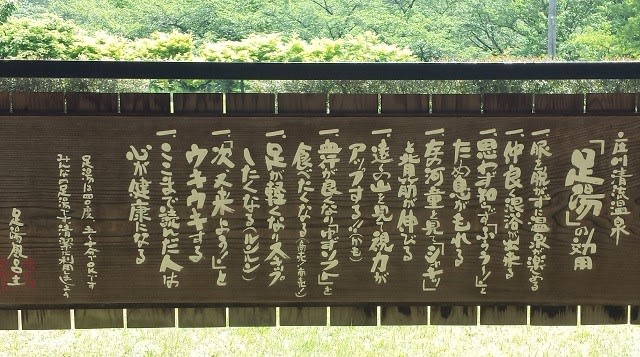 庄川清流温泉
「足湯」の効用
一、服を脱がずに温泉楽める
一、仲良く混浴出来る
一、思わず知らず「ふぅー!」と
ため息がもれる
一、左の河童を見て「シャキッ」
と背筋が伸びる
一、遠くの山を見て視力が
アップする!!(かも)
一、血行が良くなり「ゆずソフト」を
食べたくなる
一、足が軽くなり
したくなる(ルンルン)
一、「次、又来よう!」と
ウキウキする
一、ここまで読んだ人は
心が健康になる
足湯は四〇度 です
みんなの足湯です清潔に利用しましょう
足湯風呂士